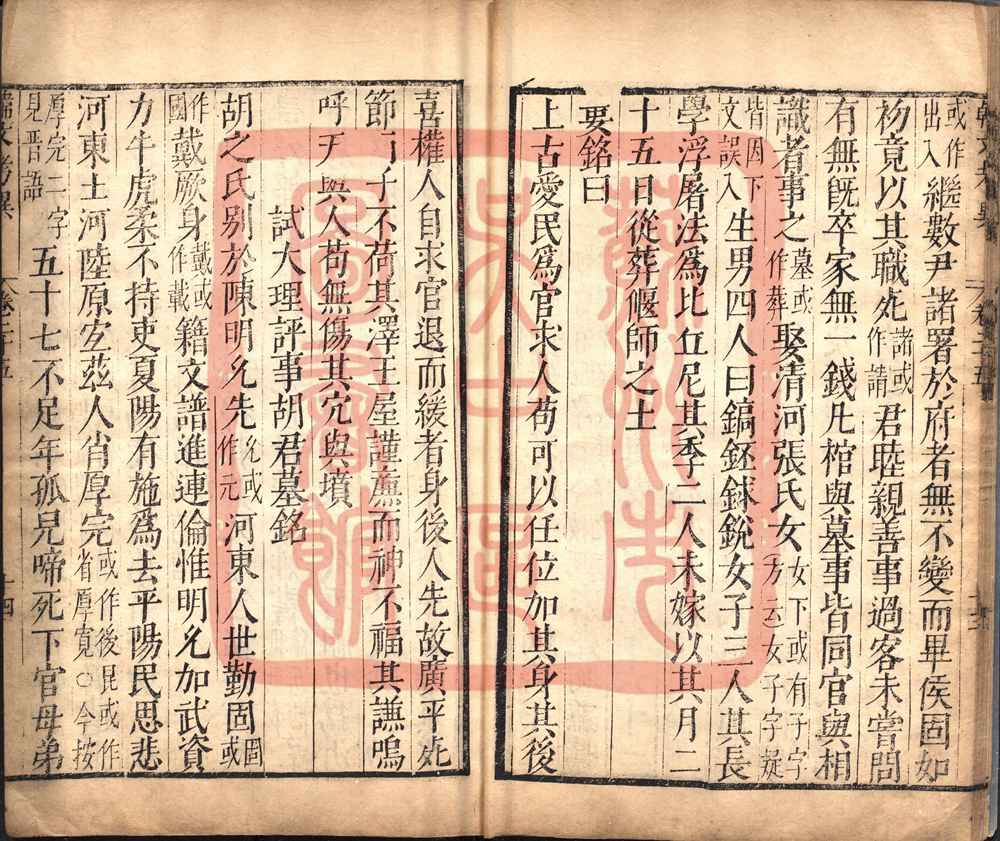 或作出入繼數尹諸署於府者無不變而畢侯固如
初竟以其職死諸或作請君睦親善事過客未嘗問
有無既卒家無一錢凡棺與墓事皆同官與相
識者事之墓或作葬娶清河張氏女女下或有子字方云女子字疑
皆因下文誤入生男四人曰鎬鉟銶銳女子三人其長
學浮屠法為比丘尼其季二人未嫁以其月二
十五日從葬偃師之土
要銘曰
上古愛民為官求人苟可以任位加其身其後
喜權人自求官退而緩者身後人先故廣平死
節而子不荷其澤王屋謹廉而神不福其謙嗚
呼天與人苟無傷其宂與墳
試大理評事胡君墓銘
胡之氏別於陳明允先允或作元河東人世勤固固或
作國戴厥身戴或作載籍文譜進連倫惟明允加武資
力牛虎柔不持吏夏陽有施為去平陽民思悲
河東土河陸原宜茲人肖厚完或作後昆或作省厚寬○今按
厚完二字見晉語五十七不足年孤兒啼死下官母弟
卷二十五